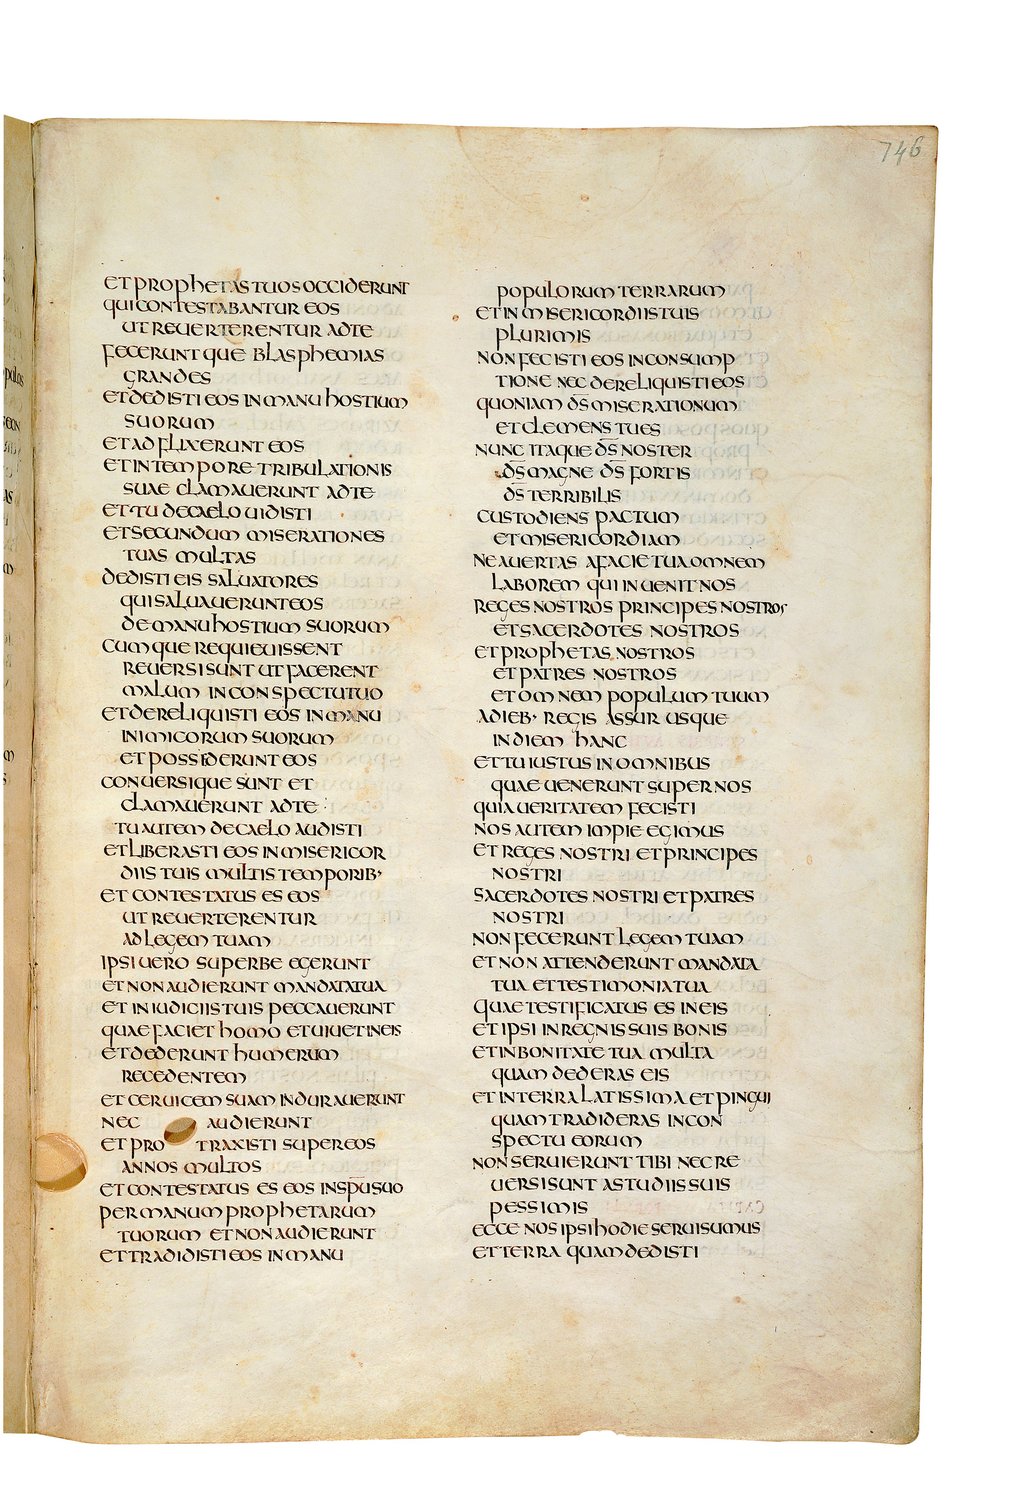 746
ET PROPHETAS TUOS OCCIDERUNT
QUI CONTESTABANTUR EOS
UT REUERTERENTUR ADTE
FECERUNTQUE BLASPHEMIAS
GRANDES
ET DEDISTI EOS IN MANU HOSTIUM
SUORUM
ET ADFLIXERUNT EOS
ET IN TEMPORE TRIBULATIONIS
SUAE CLAMAUERUNT ADTE
ET TU DE CAELO UIDISTI
ET SECUNDUM MISERATIONES
TUAS MULTAS
DEDISTI EIS SALUATORES
QUI SALUAUERUNT EOS
DE MANU HOSTIUM SUORUM
CUMQUE REQUIEUISSENT
REUERSI SUNT UT FACERENT
MALUM IN CONSPECTU TUO
ET DERELIQUISTI EOS IN MANU
INIMICORUM SUORUM
ET POSSEDERUNT EOS
CONUERSIQUE SUNT ET
CLAMAUERUNT ADTE
TU AUTEM DE CAELO AUDISTI
ET LIBERASTI EOS IN MISERICOR
DIIS TUIS MULTIS TEMPORIB·
ET CONTESTATUS ES EOS
UT REUERTERENTUR
AD LEGEM TUAM
IPSI UERO SUPERBE EGERUNT
ET NON AUDIERUNT MANDATA TUA
ET IN IUDICIIS TUIS PECCAUERUNT
QUAE FACIET HOMO ET UIUET IN EIS
ET DEDERUNT HUMERUM
RECEDENTEM
ET CERUICEM SUAM INDURAUERUNT
NEC AUDIERUNT
ET PROTRAXISTI SUPER EOS
ANNOS MULTOS
ET CONTESTATUS ES EOS IN SPU̅ SUO
PER MANUM PROPHETARUM
TUORUM ET NON AUDIERUNT
ET TRADIDISTI EOS IN MANU
POPULORUM TERRARUM
ET IN MISERICORDIIS TUIS
PLURIMIS
NON FECISTI EOS IN CONSUMP
TIONE NEC DERELIQUISTI EOS
QUONIAM DS̅ MISERATIONUM
ET CLEMENS TU ES
NUNC ITAQUE DS̅ NOSTER
DS̅ MAGNE DS̅ FORTIS
DS̅ TERRIBILIS
CUSTODIENS PACTUM
ET MISERICORDIAM
NE AUERTAS A FACIE TUA OMNEM
LABOREM QUI INUENIT NOS
REGES NOSTROS PRINCIPES NOSTROS
ET SACERDOTES NOSTROS
ET PROPHETAS NOSTROS
ET PATRES NOSTROS
ET OMNEM POPULUM TUUM
A DIEB· REGIS ASSUR USQUE
IN DIEM HANC
ET TU IUSTUS IN OMNIBUS
QUAE UENERUNT SUPER NOS
QUIA UERITATEM FECISTI
NOS AUTEM IMPIE EGIMUS
ET REGES NOSTRI ET PRINCIPES
NOSTRI
SACERDOTES NOSTRI ET PATRES
NOSTRI
NON FECERUNT LEGEM TUAM
ET NON ATTENDERUNT MANDATA
TUA ET TESTIMONIA TUA
QUAE TESTIFICATUS ES IN EIS
ET IPSI IN REGNIS SUIS BONIS
ET IN BONITATE TUA MULTA
QUAM DEDERAS EIS
ET IN TERRA LATISSIMA ET PINGUI
QUAM TRADIDERAS IN CON
SPECTU EORUM
NON SERUIERUNT TIBI NEC RE
UERSI SUNT A STUDIIS SUIS
PESSIMIS
ECCE NOS IPSI HODIE SERUI SUMUS
ET TERRA QUAM DEDISTI